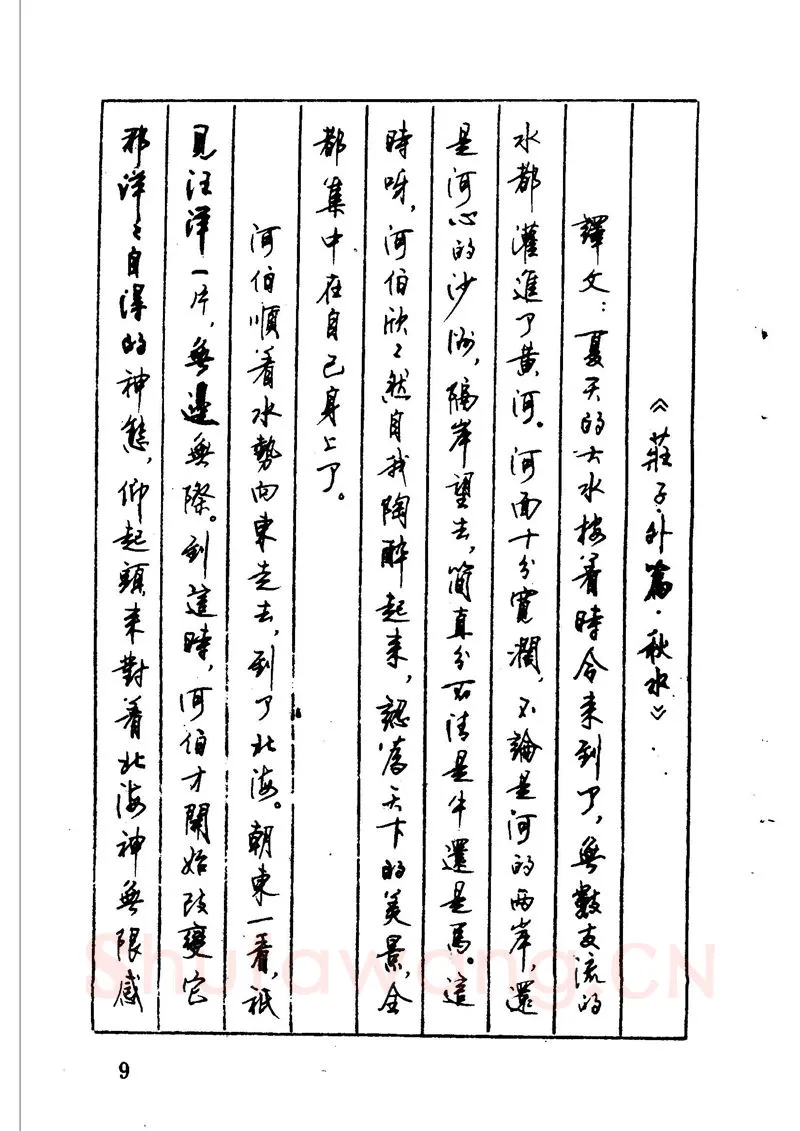 《莊子·外篇·秋水》
譯文：夏天的大水按着時令来到了，無數支流的
水都灌進了黄河。河面十分寬濶，不論是河的兩岸，還
是河心的沙洲，隔岸望去，简直分不清是牛還是馬。這
時呀，河伯欣〻然自我陶醉起来，認為天下的美景，全
都集中在自己身上了。
河伯順着水勢向東走去，到了北海。朝東一看，祇
見汪洋一片，無邊無際。到這時，河伯才開始改變它
那洋〻自得的神態，仰起頭来對着北海神無限感
9
Shufawang.CN